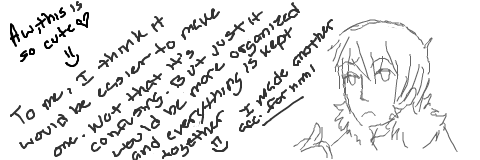 Aw, this is
so cute
To me, I think it
would be easier to make
one. Not that it's
confusing. But just it
would be more organized
and everything is kept
together
I made another
acc. for him!